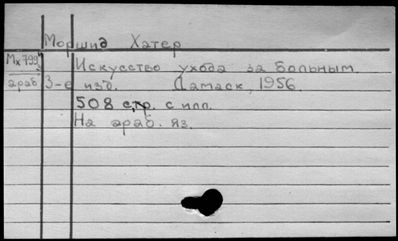 Моршид Хатер
Мх799 Искусство ухода за больным.
араб 3-е изд. Дамаск, 1956.
508 стр. с илл.
На араб. яз.